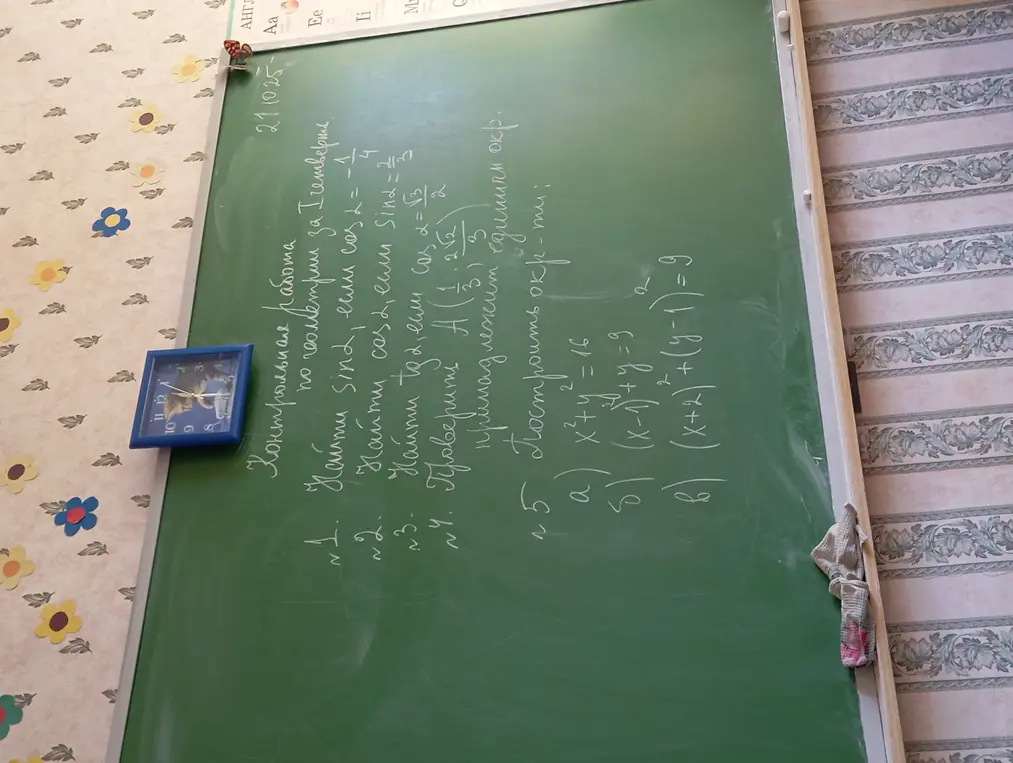 АНГЛ
Aa
Ee
Ii
21 10 25
Контрольная работа
по геометрии за I четверть
N1. Найти sin α, если cos α = -1/4
N2. Найти cos α, если sin α = 2/3
N3. Найти tg α, если cos α = √3/2
N4. Проверить A(1/3; 2√2/3)
принадлежит единичн окр.
N5 Построить окр-ти:
а) x² + y² = 16
б) (x-1)² + y² = 9
в) (x+2)² + (y-1)² = 9